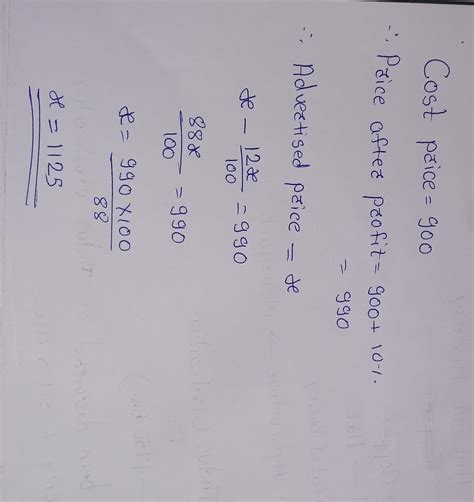 Cost price = 900
∴ Price after profit = 900 + 10%
= 990
∴ Advertised price = x
x - 12x/100 = 990
88x/100 = 990
x = 990 × 100/88
x = 1125